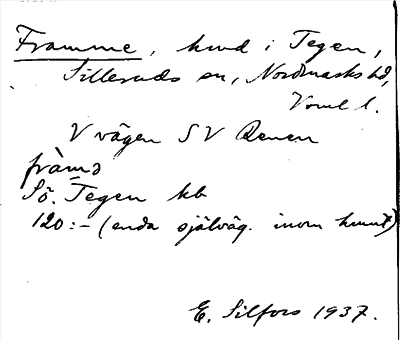 Framme, hmd i Tegen,
Silleruds sn, Nordmarks hd,
Verml l.
V vägen SV Renen
fràmə
Sö. Tegen kb
120:- (enda själväg. inom hmnt)
E. Silfors 1937.